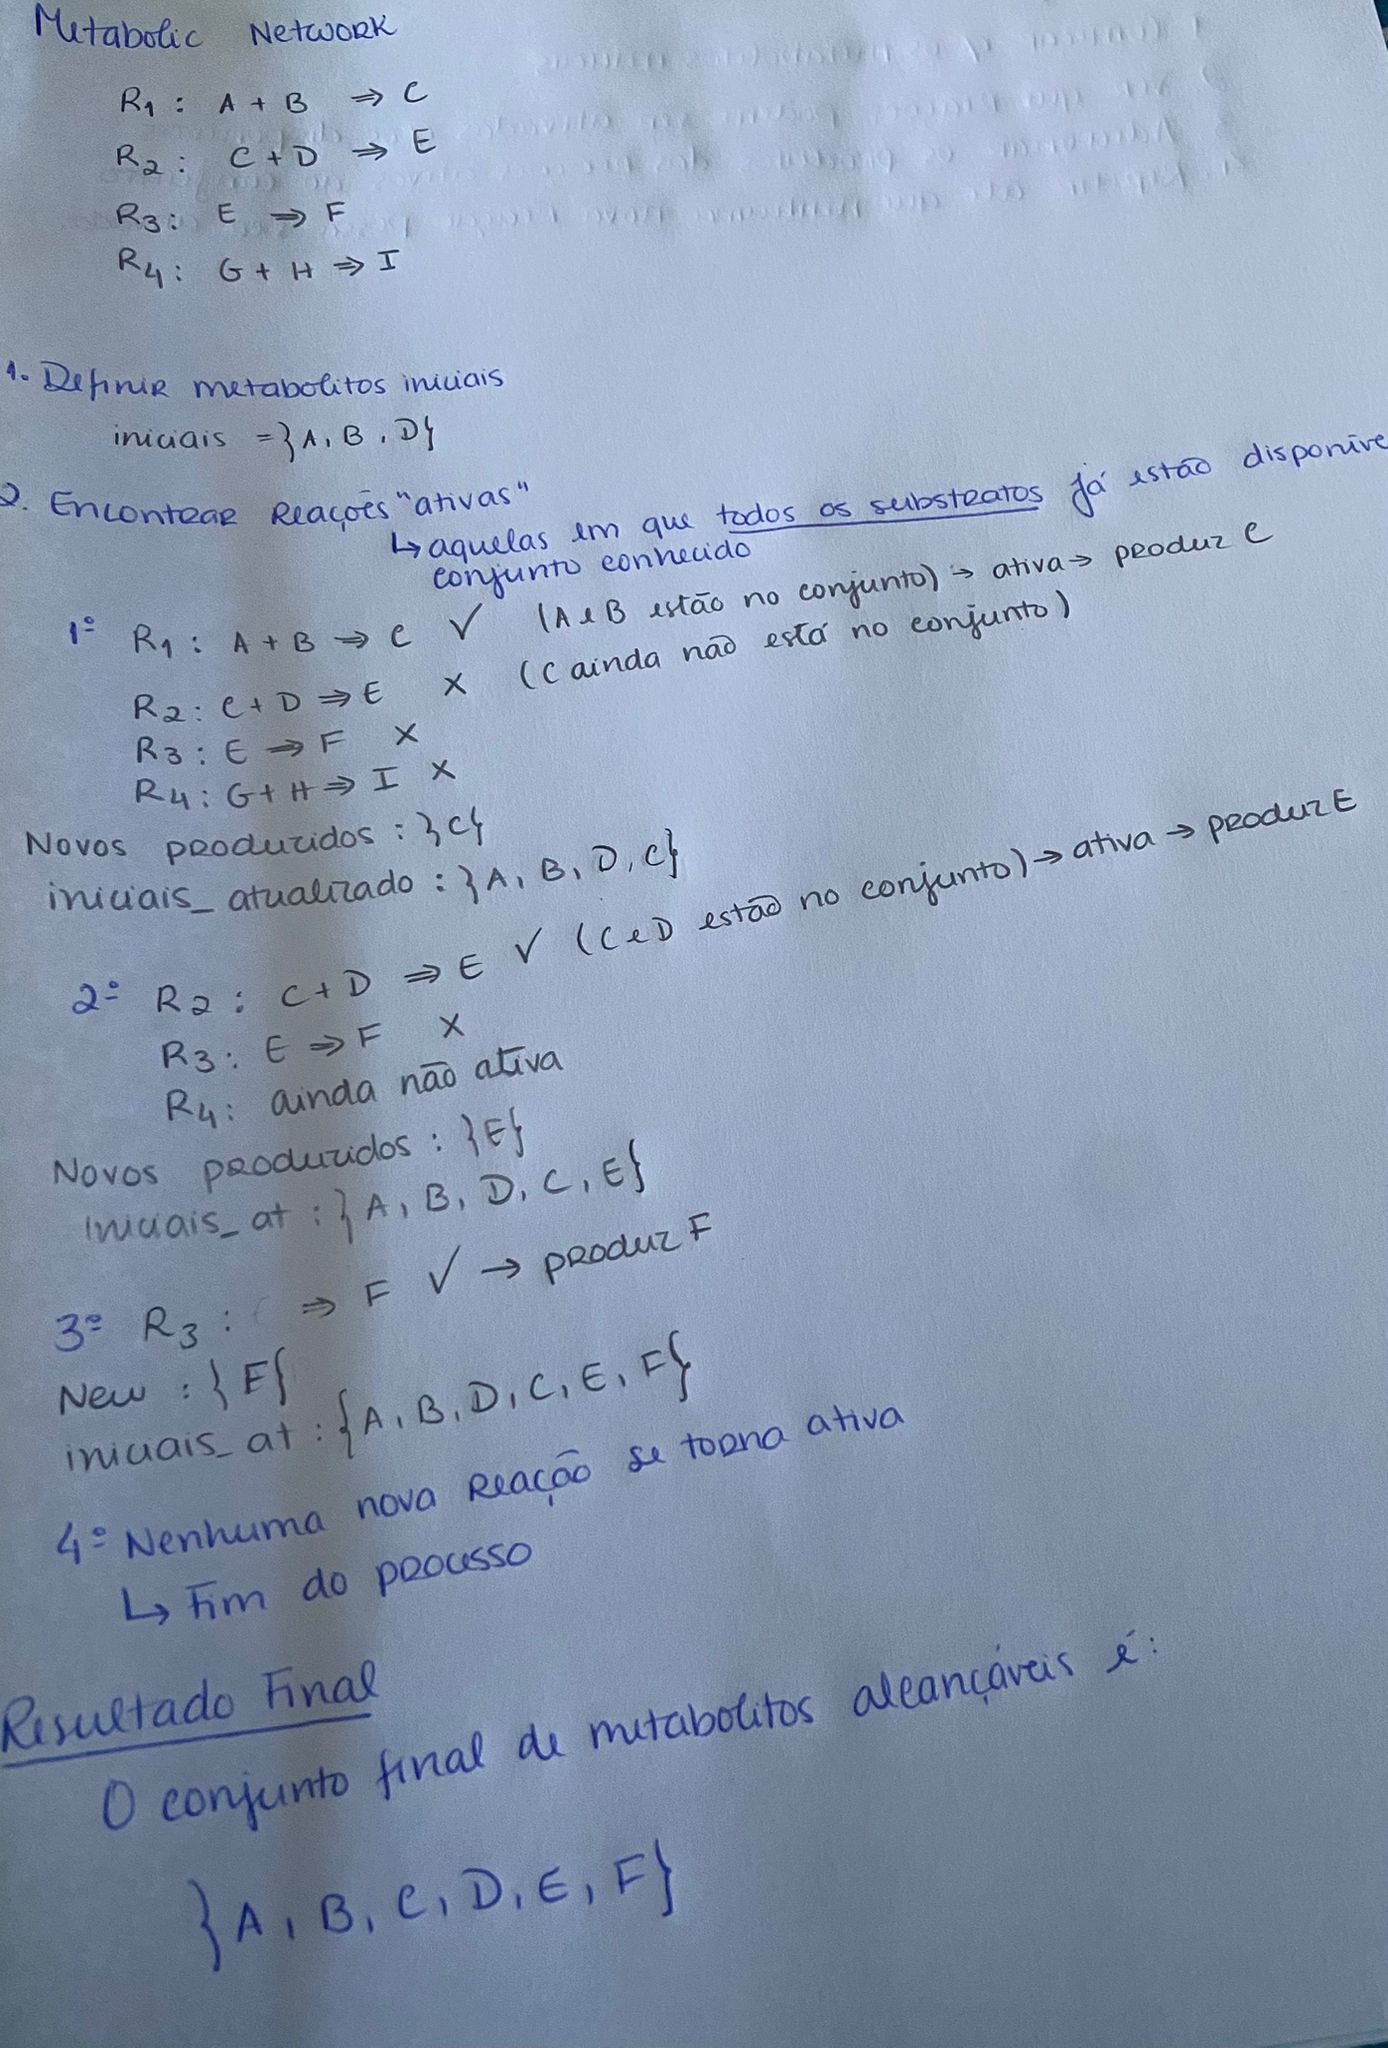 Metabolic Network
R1: A + B ⇒ C
R2: C + D ⇒ E
R3: E ⇒ F
R4: G + H ⇒ I
1. Definir metabolitos iniciais
iniciais = {A, B, D}
2. Encontrar Reações "ativas"
↳ aquelas em que todos os substratos já estão disponíve
conjunto conhecido
1º R1: A + B ⇒ C ✓ (A e B estão no conjunto) → ativa → produz C
R2: C + D ⇒ E X (C ainda não está no conjunto)
R3: E ⇒ F X
R4: G + H ⇒ I X
Novos produzidos: {C}
iniciais_atualizado: {A, B, D, C}
2º R2: C + D ⇒ E ✓ (C e D estão no conjunto) → ativa → produz E
R3: E ⇒ F X
R4: ainda não ativa
Novos produzidos: {E}
iniciais_at: {A, B, D, C, E}
3º R3: ⇒ F ✓ → produz F
New: {F}
iniciais_at: {A, B, D, C, E, F}
4º Nenhuma nova Reação se torna ativa
↳ Fim do processo
Resultado Final
O conjunto final de metabolitos alcançáveis é:
{A, B, C, D, E, F}